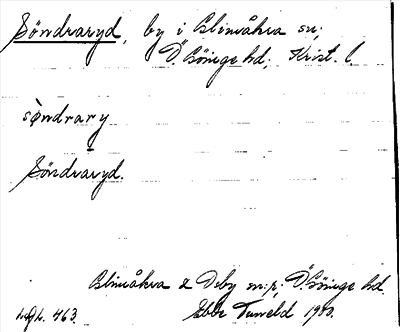 Söndraryd, by i Glimåkra sn;
Ö. Göinge hd; Krist. l.
sǿndrary
Söndraryd.
Glimåkra & Ö. Göinge hd.
463. Ebbe Tuneld 19